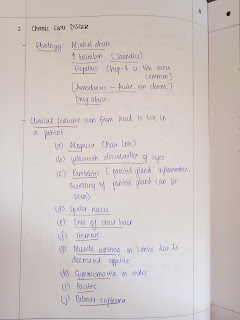 2. Chronic Liver Disease
Etiology Alcohol abuse
↑ bilirubin (Jaundice)
Hepatitis (Hep-B is the most
common)
Drug abuse
Clinical features seen from head to toe in
a patient
(a) Alopecia (hair loss)
(b) yellowish discolouration of eyes
(c) Parotiditis (parotid gland inflammation
swelling of parotid gland can be
seen)
(d) Spider naevi
(e) Loss of chest hair
(f) Tremors
(g) Muscle wasting in limbs due to
decreased appetite
(h) Gynaecomastia in males
(i) Ascites
(j) Palmar erythema